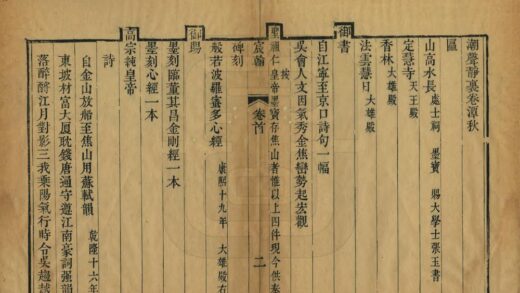 潮聲靜裏卷潭秋
區
山高水長 處士祠 墨寶 賜大學士張玉書
定慧寺 天王殿
香林 大雄殿
法雲慧日 大雄殿
御書
自江寧至京口詩句一幅
吳會人文因氣秀金焦巒勢起宏觀
按
聖祖仁皇帝墨寶存焦山者惟以上四件現今供奉
宸翰
卷首
二
碑刻
般若波羅蜜多心經 康熙十九年 大雄殿右
御賜
墨刻臨董其昌金剛經一本
墨刻心經一本
高宗純皇帝
詩
自金山放船至焦山用蘇軾韻 乾隆十六年
東坡材富大厦耽錢唐通守遵江南豪詞强韻
落醉酔江月對影三我乘陽氣行時令吳趨越